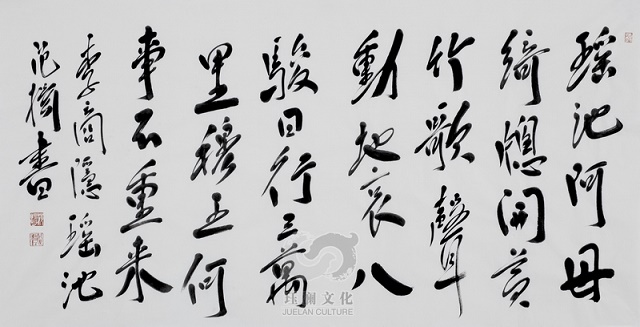 瑶池阿母
綺窗開黄
竹歌聲
動地哀八
駿日行三萬
里穆王何
事不重来
李商隱瑶池
范擴書
珏澜文化
JUELAN CULTURE